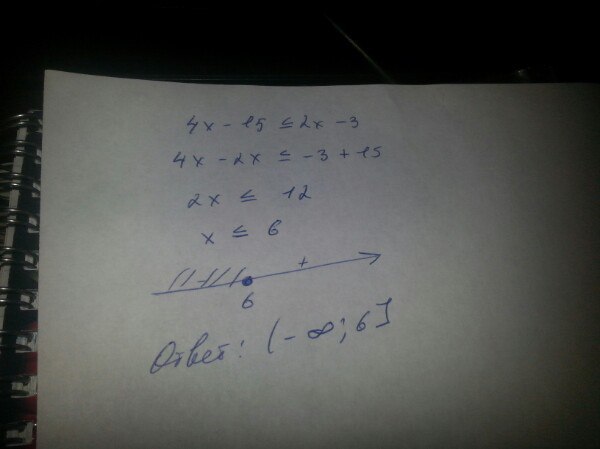 4x - 15 ≤ 2x - 3
4x - 2x ≤ -3 + 15
2x ≤ 12
x ≤ 6
+
6
Ответ: (-∞; 6]